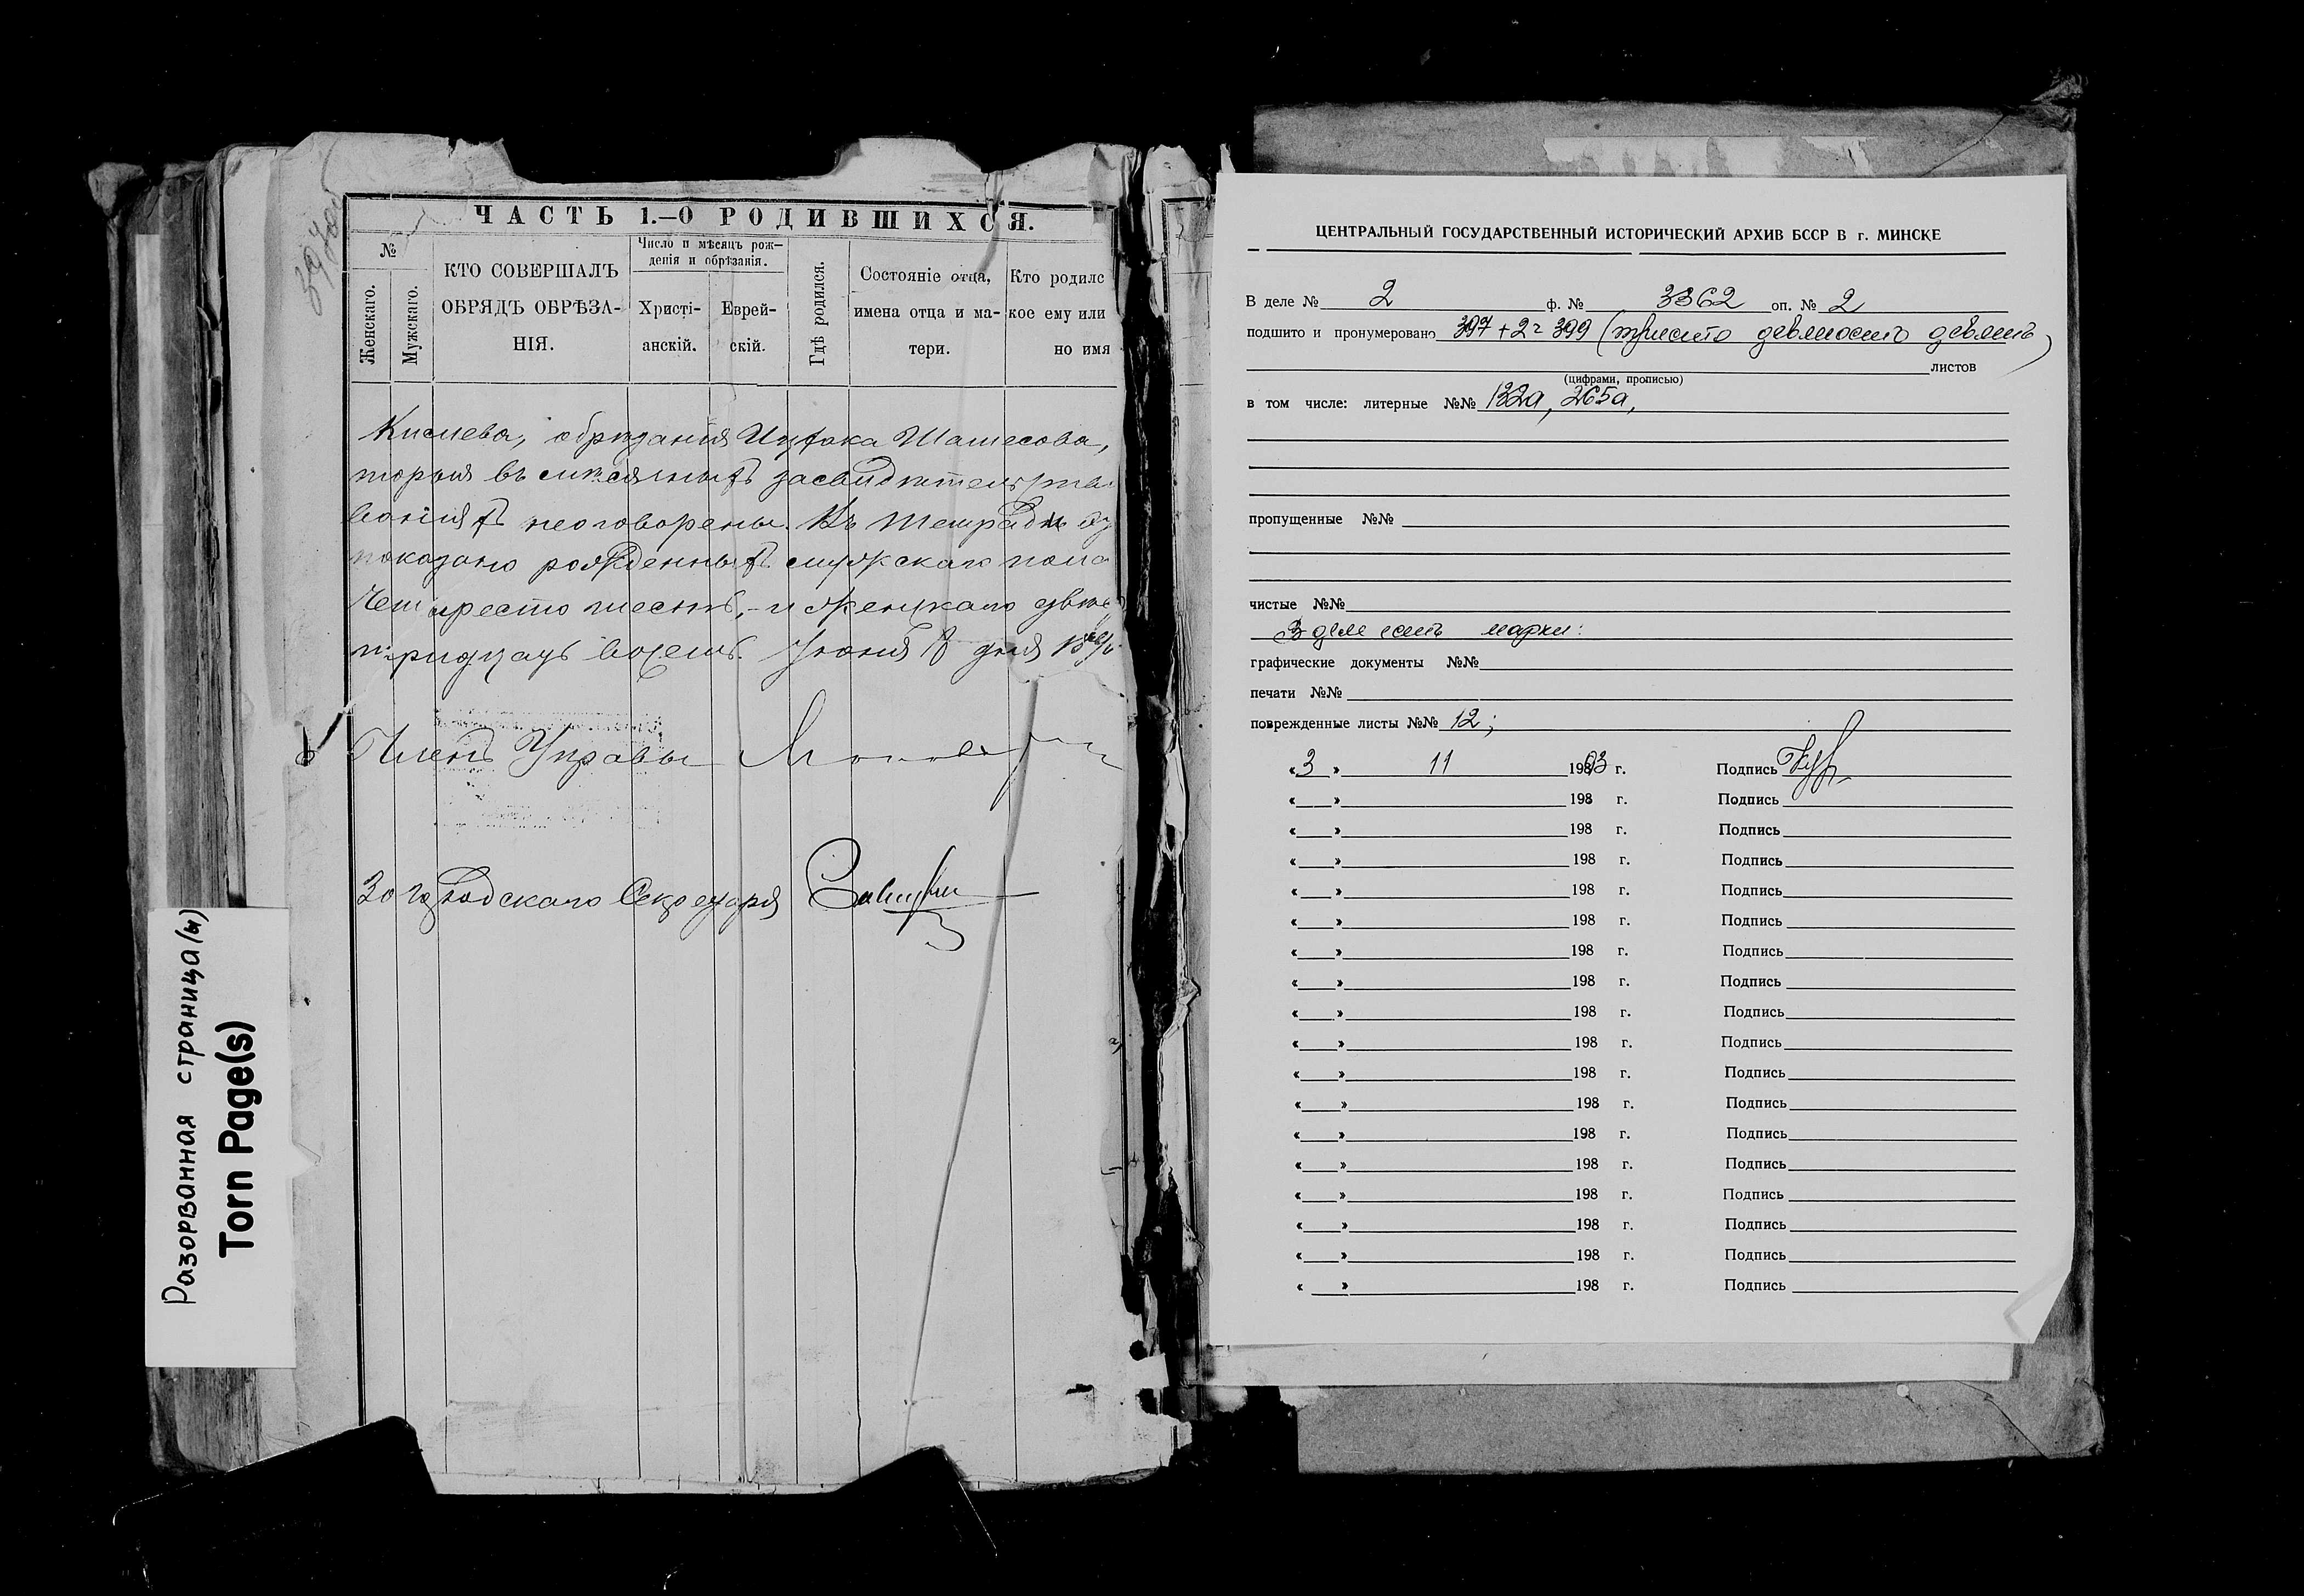 ЧАСТЬ 1.—О РОДИВШИХСЯ.
№
Женскаго.
Мужскаго.
КТО СОВЕРШАЛЪ
ОБРЯДЪ ОБРѢЗА-
НІЯ.
Число и мѣсяцъ рож-
денія и обрѣзанія.
Христі-
анскій.
Еврей-
скій.
Гдѣ родился.
Состояніе отца,
имена отца и ма-
тери.
Кто родилс
кое ему или
но имя
обрѣзанія Ицхака
торыя въ мѣсячныхъ засвидѣтельство
ваніяхъ неоговорены. Въ тетради
показано рожденныхъ мужскаго пола
Четыреста шесть, и женскаго двѣс
тридцать восемь. Іюня дня
Членъ Управы
За Городскаго Секретаря
Разорванная страница/(ы)
Torn Page(s)
ЦЕНТРАЛЬНЫЙ ГОСУДАРСТВЕННЫЙ ИСТОРИЧЕСКИЙ АРХИВ БССР В г. МИНСКЕ
В деле № 2 ф. № 3362 оп. № 2
подшито и пронумеровано 397 + 2 = 399 (триста девяносто девять)
листов
(цифрами, прописью)
в том числе: литерные №№ 132а, 265а,
пропущенные №№
чистые №№
В деле есть марки:
графические документы №№
печати №№
поврежденные листы №№ 12;
«3» 11 1983 г. Подпись
« » 198 г. Подпись
« » 198 г. Подпись
« » 198 г. Подпись
« » 198 г. Подпись
« » 198 г. Подпись
« » 198 г. Подпись
« » 198 г. Подпись
« » 198 г. Подпись
« » 198 г. Подпись
« » 198 г. Подпись
« » 198 г. Подпись
« » 198 г. Подпись
« » 198 г. Подпись
« » 198 г. Подпись
« » 198 г. Подпись
« » 198 г. Подпись
« » 198 г. Подпись